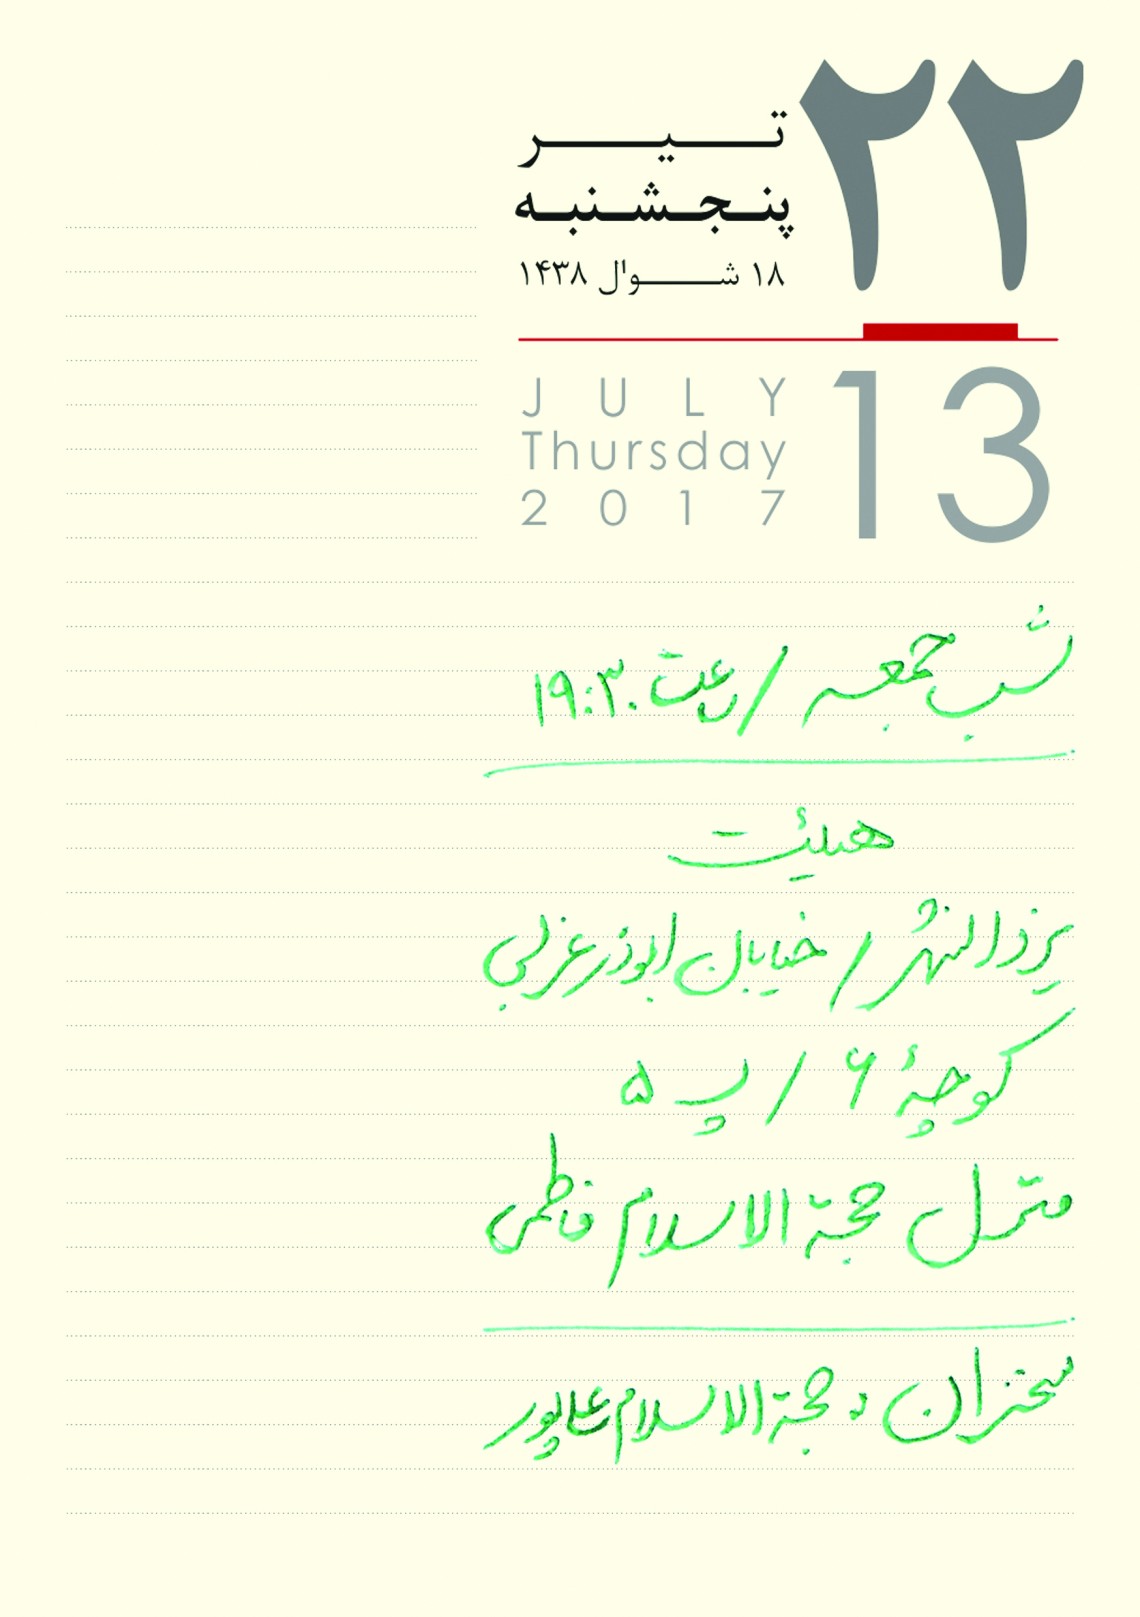 ۲۲
تیر
پنجشنبه
۱۸ شوال ۱۴۳۸
13
JULY
Thursday
2017
شب جمعه / ساعت ۱۹:۳۰
هیئت
/ خیابان ابوذر غربی
کوچهٔ ۶ / پ ۵
منزل حجة الاسلام فاطمی
سخنران : حجة الاسلام عالپور